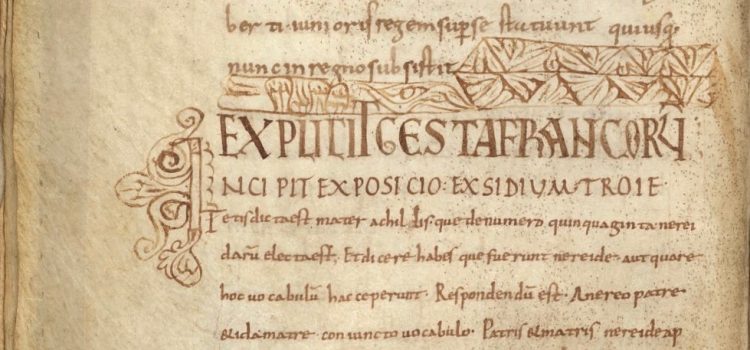 ber ti iunioris regem sup se statuunt quiusq
nunc in regno subsistit
EXPLICIT GESTA FRANCORŪ
INCIPIT EXPOSICIO · EXSIDIUM · TROIE
Tetis dicta est mater achillis · que de numero quinquaginta nerei
darū electa est · Et dicere habes que fuerunt nereide · aut quare
hoc uocabulū hac ceperunt · Respondendū est · A nereo patre
& ida matre coniuncto uocabulo · Patris & matris nereide ap